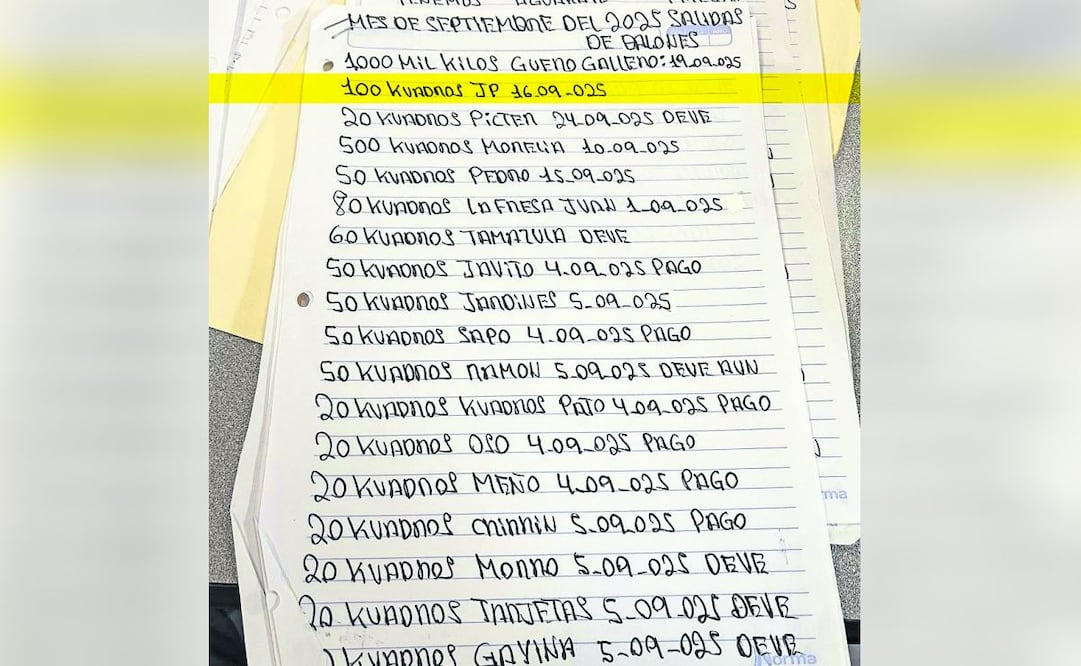 MES DE SEPTIEMBRE DEL 2025 SALIDAS
DE BALONES
1000 MIL KILOS GUERO GALLERO: 19.09.025
100 KUADROS JP 16.09_025
20 KUADROS PiCTER 24.09_025 DEVE
500 KUADROS MORELIA 10.09_025
50 KUADROS PEDRO 15_09_025
80 KUADROS LA FRESA JUAN 1_09_025
60 KUADROS TAMAZULA DEVE
50 KUADROS JAVITO 4.09_025 PAGO
50 KUADROS JARDINES 5_09_025
50 KUADROS SAPO 4.09_025 PAGO
50 KUADROS RAMON 5.09.025 DEVE AUN
20 KUADROS KUADROS PATO 4.09_025 PAGO
20 KUADROS OSO 4.09_025 PAGO
20 KUADROS MEÑO 4_09_025 PAGO
20 KUADROS 5_09.025 PAGO
20 KUADROS MORRO 5_09_025 DEVE
20 KUADROS TARJETAS 5_09_025 DEVE
KUADROS GAVINA 5_09_025 DEVE
Norma